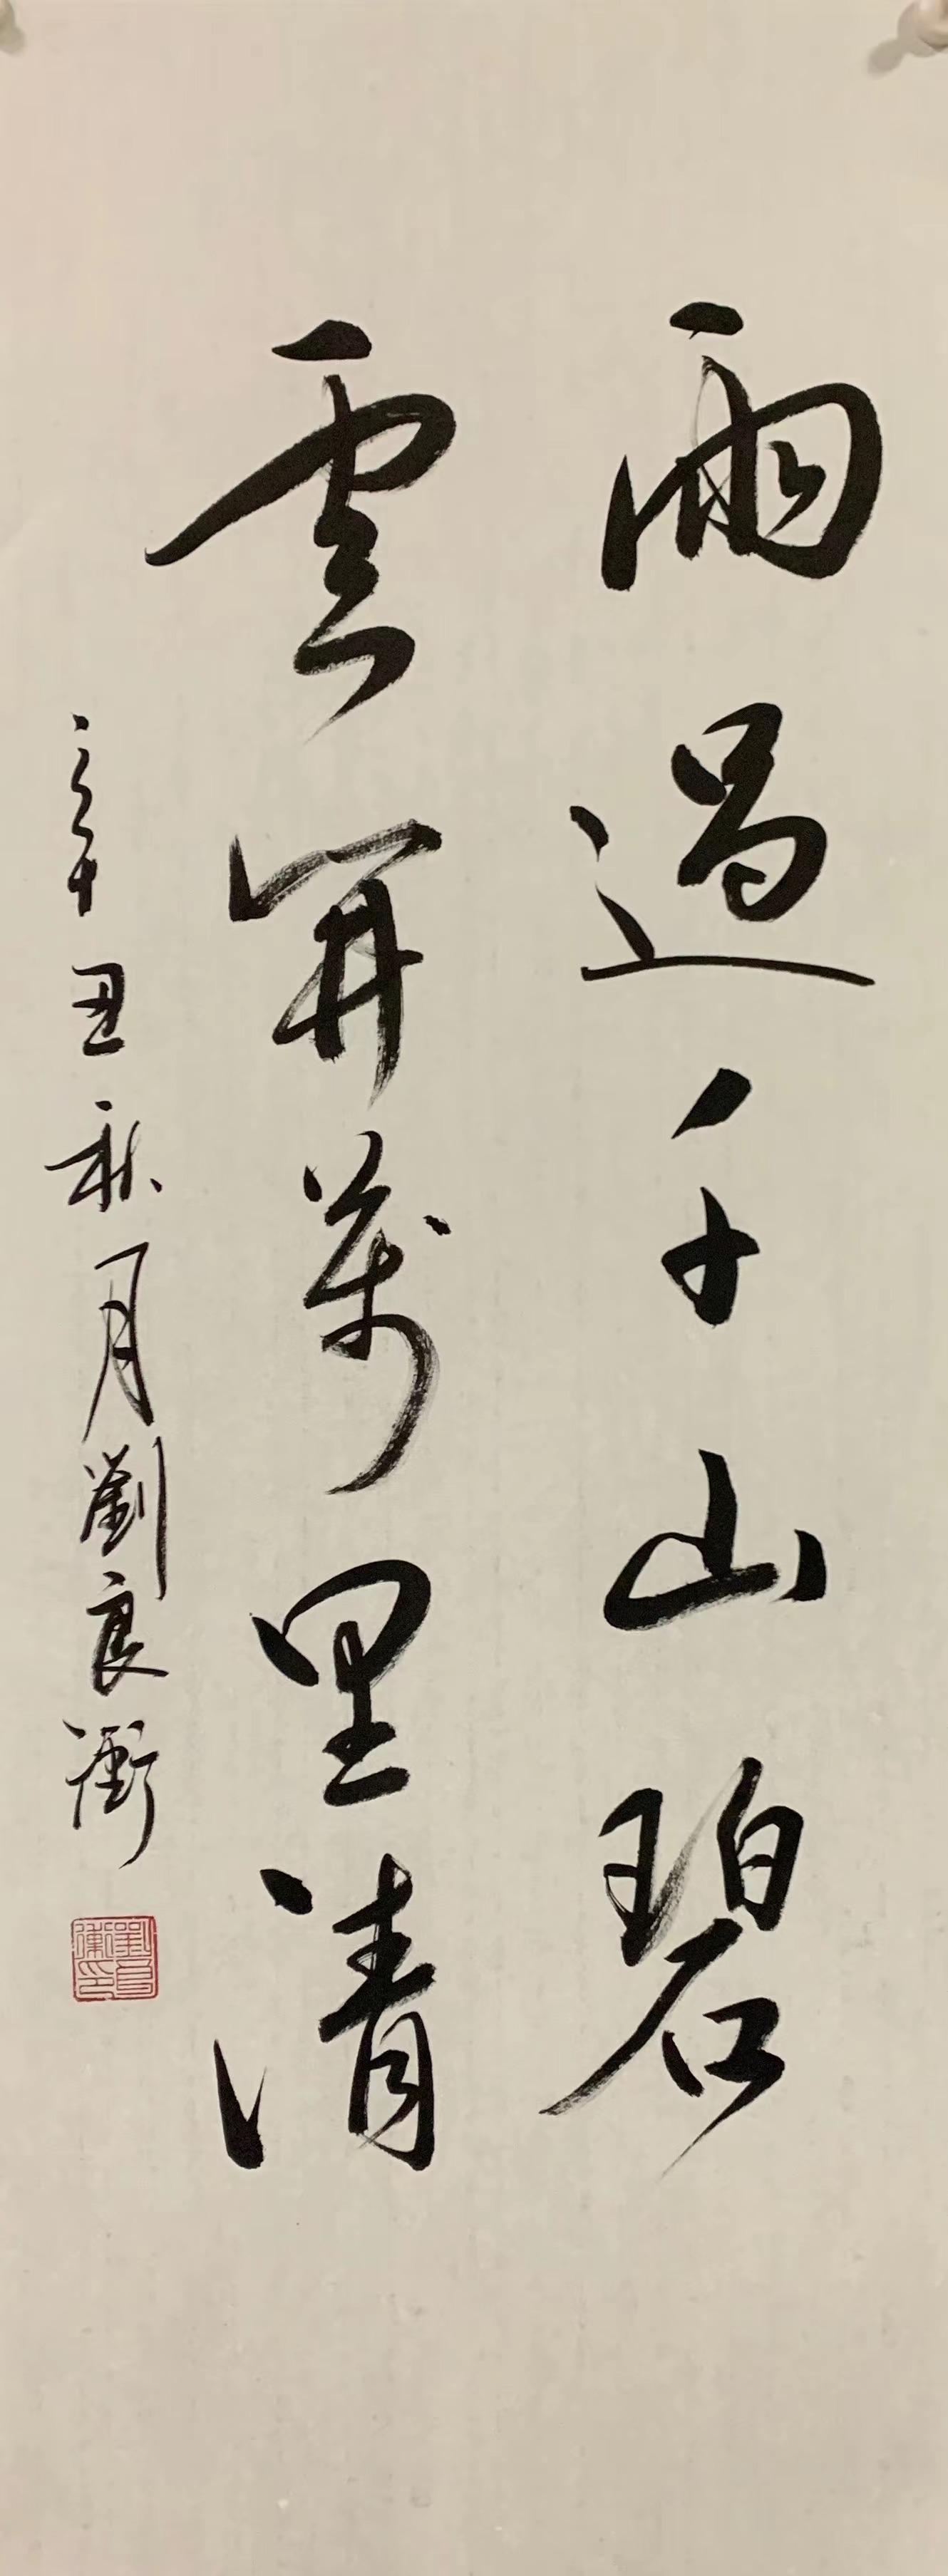 雨過千山碧
雲開萬里清
辛丑秋月劉良衛
劉良衛印